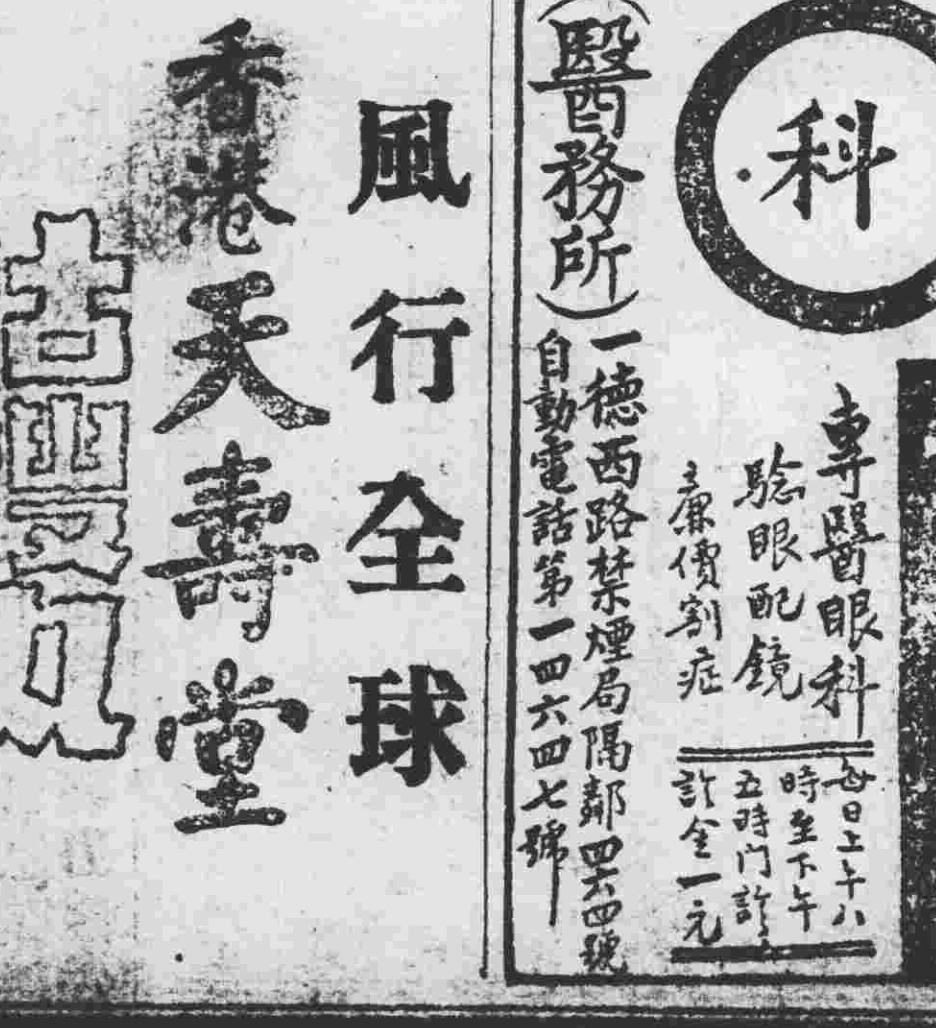 科
專醫眼科
騐眼配鏡
廉價割症
每日上午八
時至下午
五時門診
診金一元
(醫務所)
一德西路禁煙局隔鄰四六四號
自動電話第一四六四七號
風行全球
香港天壽堂